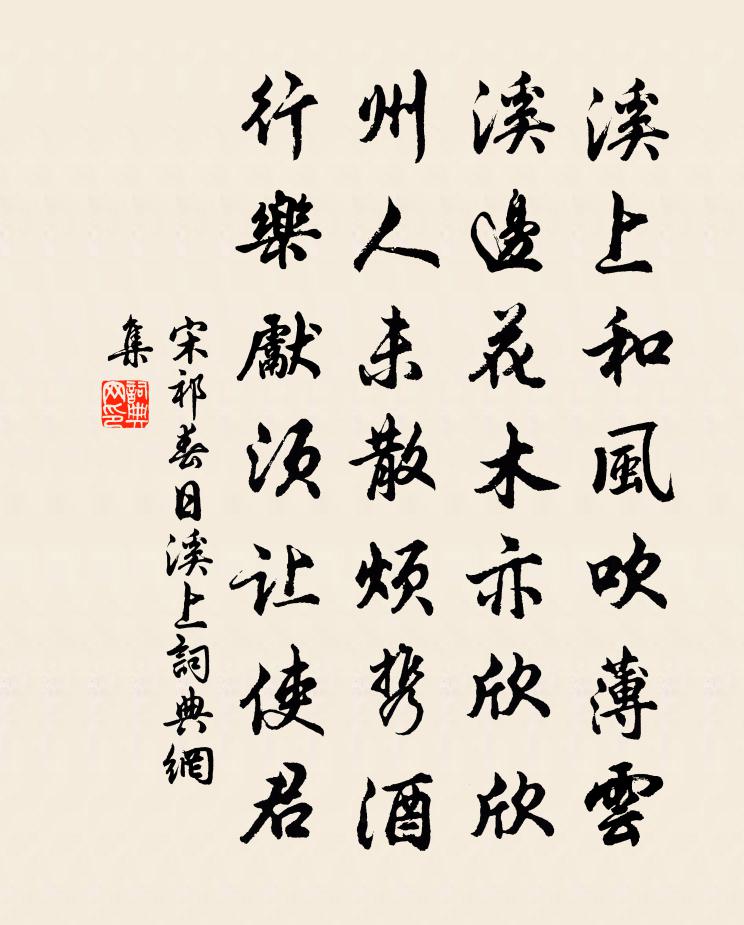 溪上和風吹薄雲
溪邊花木亦欣欣
州人未散煩携酒
行樂獻須让使君
宋祁春日溪上詞典網
集
詞典网印